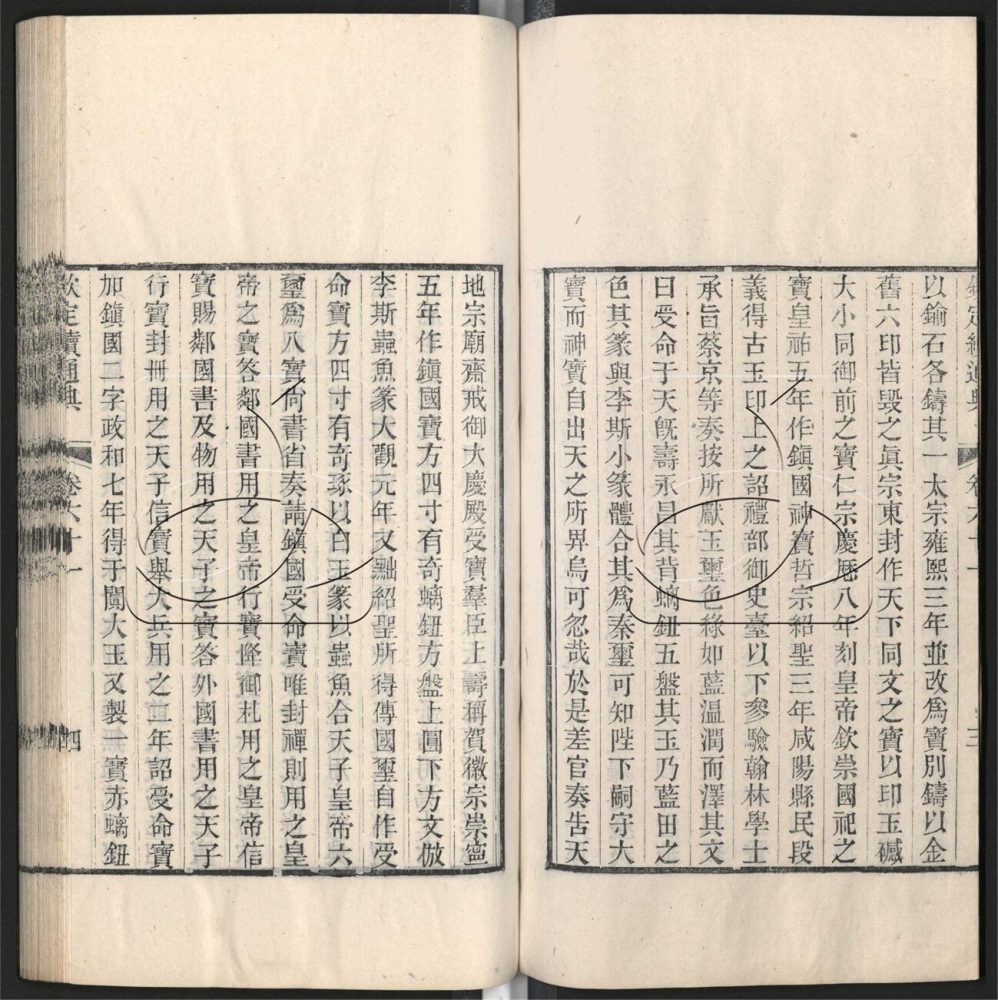 欽定續通典 卷六十一 三
以鍮石各鑄其一太宗雍熙三年並改爲寶別鑄以金
舊六印皆毀之眞宗東封作天下同文之寶以印玉𥖎
大小同御前之寶仁宗慶厯八年刻皇帝欽崇國祀之
寶皇祐五年作鎭國神寶哲宗紹聖三年咸陽縣民段
義得古玉印上之詔禮部御史臺以下參驗翰林學士
承旨蔡京等奏按所獻玉璽色綠如藍溫潤而澤其文
曰受命于天旣壽永昌其背螭鈕五盤其玉乃藍田之
色其篆與李斯小篆體合其爲秦璽可知陛下嗣守大
寶而神寶自出天之所畀烏可忽哉於是差官奏告天
地宗廟齋戒御大慶殿受寶羣臣上壽稱賀徽宗崇寧
五年作鎭國寶方四寸有奇螭鈕方盤上圓下方文倣
李斯蟲魚篆大觀元年又黜紹聖所得傳國璽自作受
命寶方四寸有奇琢以白玉篆以蟲魚合天子皇帝六
璽爲八寶尚書省奏請鎭國受命寶唯封禪則用之皇
帝之寶答鄰國書用之皇帝行寶降御札用之皇帝信
寶賜鄰國書及物用之天子之寶答外國書用之天子
行寶封冊用之天子信寶舉大兵用之二年詔受命寶
加鎭國二字政和七年得于闐大玉又製一寶亦螭鈕
欽定續通典 卷六十一 四